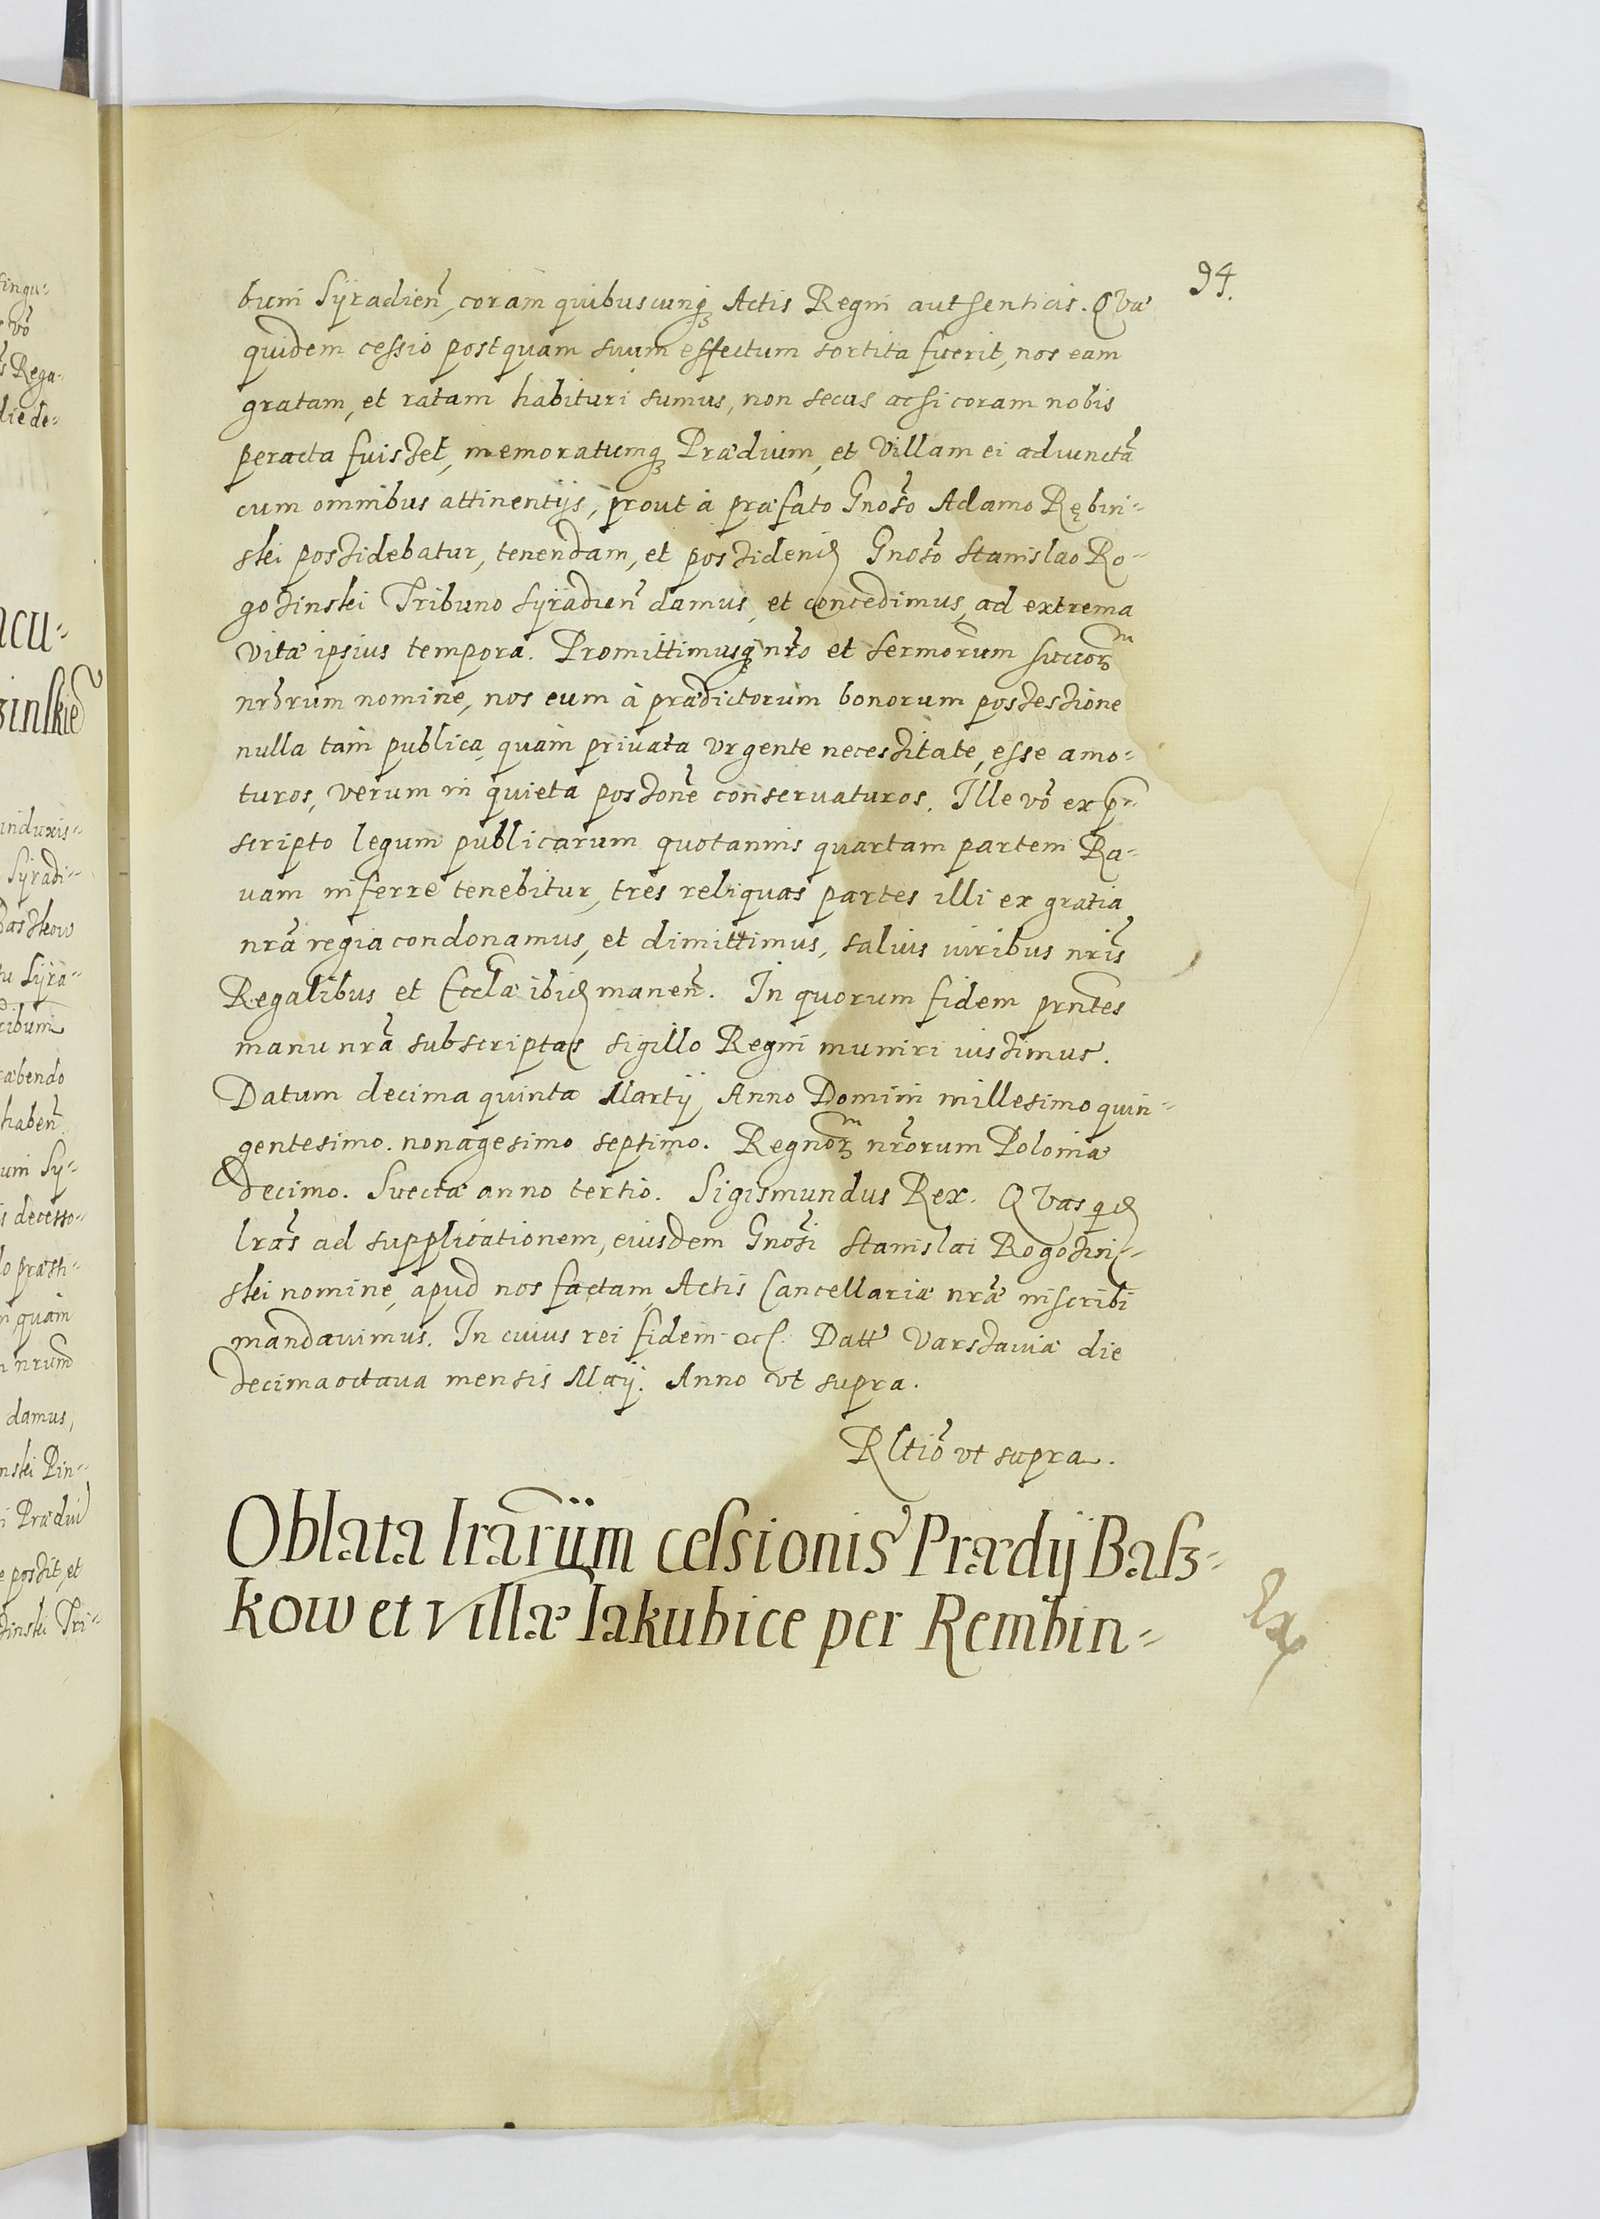 94.
buni Syradien̄, coram quibuscunq3 Actis Regni authenticis. Qvæ
quidem cessio postquam suum effectum sortita fuerit, nos eam
gratam, et ratam habituri sumus, non secus acsi coram nobis
peracta fuisset, memoratumq3 Prædium, et Villam ei adiunctā
cum omnibus attinentijs, prout à præfato Gnoso Adamo Rębin-
ski possidebatur, tenendam, et possidend Gnoso Stanislao Ro-
gozinski Tribuno Syradien̄ damus, et concedimus, ad extrema
vitæ ipsius tempora. Promittimusq3 nr̄o et Sermorum succor3m
nr̄orum nomine, nos eum à prædictorum bonorum possessione
nulla tam publica, quàm priuata vrgente necessitate, esse amo-
turos, verum in quieta possōne conseruaturos. Ille vō ex præ-
scripto legum publicarum quotannis quartam partem Ra-
uam inferre tenebitur, tres reliquas partes illi ex gratia
nrā regia condonamus, et dimittimus, saluis iuribus nrīs
Regalibus et Ecclæ ibid manen̄. In quorum fidem prn̄tes
manu nrā subscriptas sigillo Regni muniri iussimus.
Datum decima quinta Martij Anno Domini millesimo quin-
gentesimo. nonagesimo septimo. Regnor3m nr̄orum Poloniæ
decimo. Sueciæ anno tertio. Sigismundus Rex. Qvas qd
lrās ad supplicationem, eiusdem Gnosi Stanislai Rogozin-
ski nomine, apud nos factam, Actis Cancellariæ nrǣ inscribi
mandauimus. In cuius rei fidem etc. Datt Varsauiæ die
decima octaua mensis Maij. Anno vt supra.
Rltiō vt supra.
Oblata lrārum cessionis Prædij Basz-
kow et villæ Iakubice per Rembin-